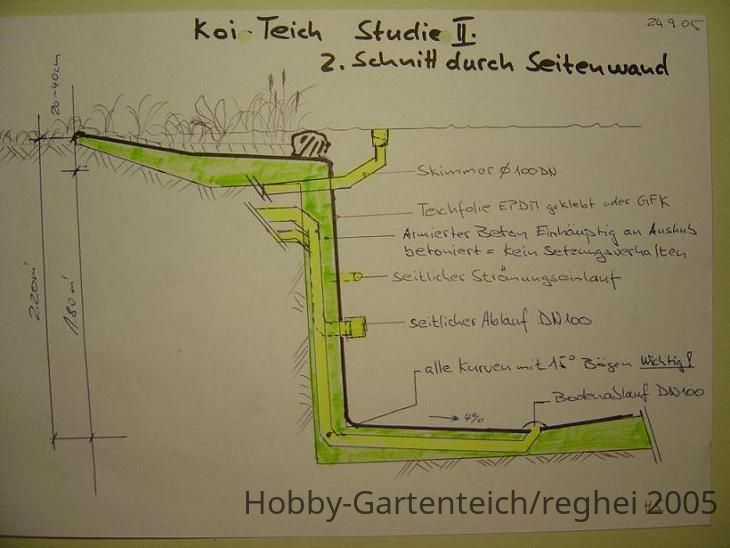 Koi-Teich Studie II.
24.9.05
2. Schnitt durch Seitenwand
20-40cm
Skimmer Ø100DN
Teichfolie EPDM geklebt oder GFK
Armierter Beton Einhäuptig an Aushub
betoniert = kein Setzungsverhalten
seitlicher Strömungseinlauf
2.20m
1.80m
seitlicher Ablauf DN100
alle Kurven mit 15° Bögen Wichtig!
Bodenablauf DN100
→ 4%
Hobby-Gartenteich/reghei 2005